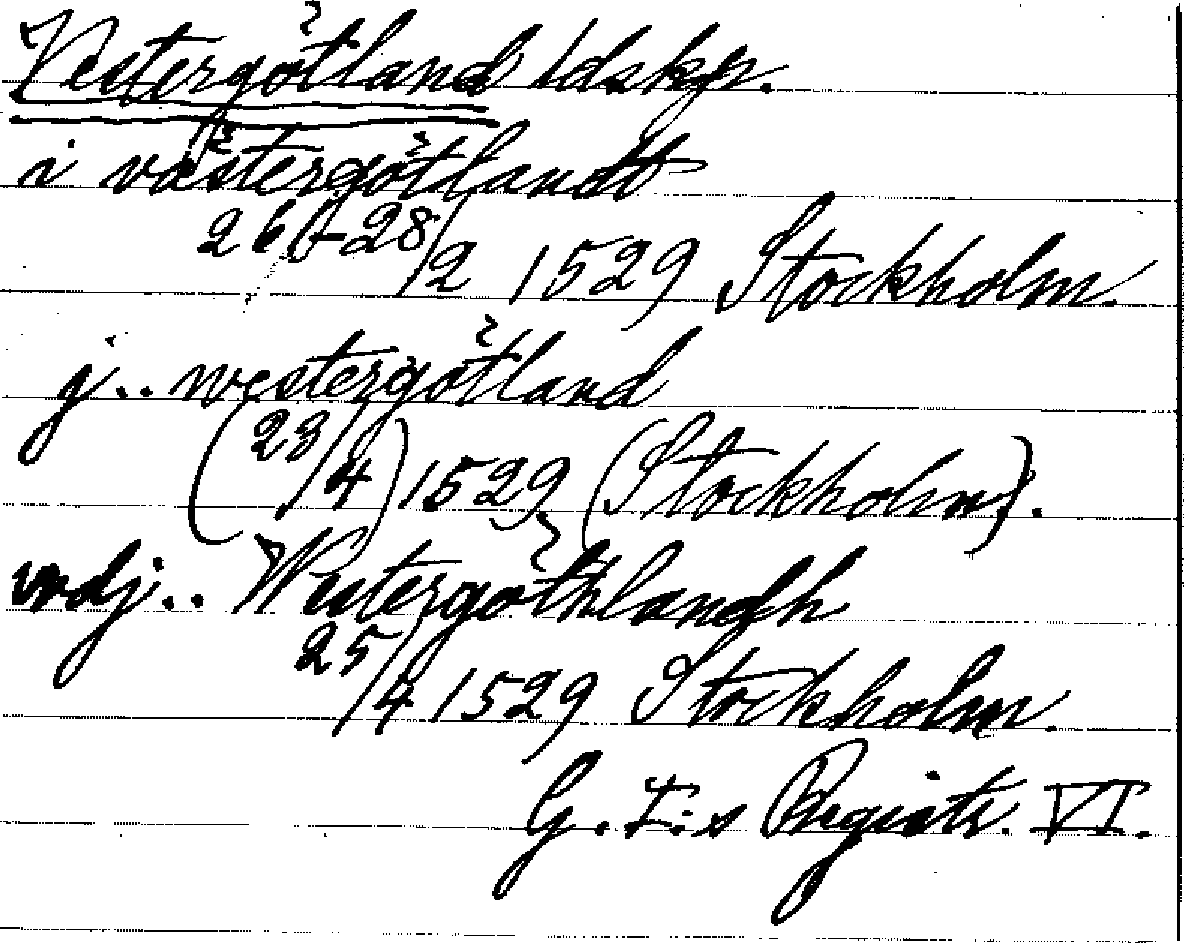 Vestergötland ldskp.
i västergötlandt
26-28/2 1529 Stockholm.
j.. westergötland
(23/4) 1529 (Stockholm).
vndj.. Westergöthlandh
25/4 1529 Stockholm.
G. I:s Registr. VI.